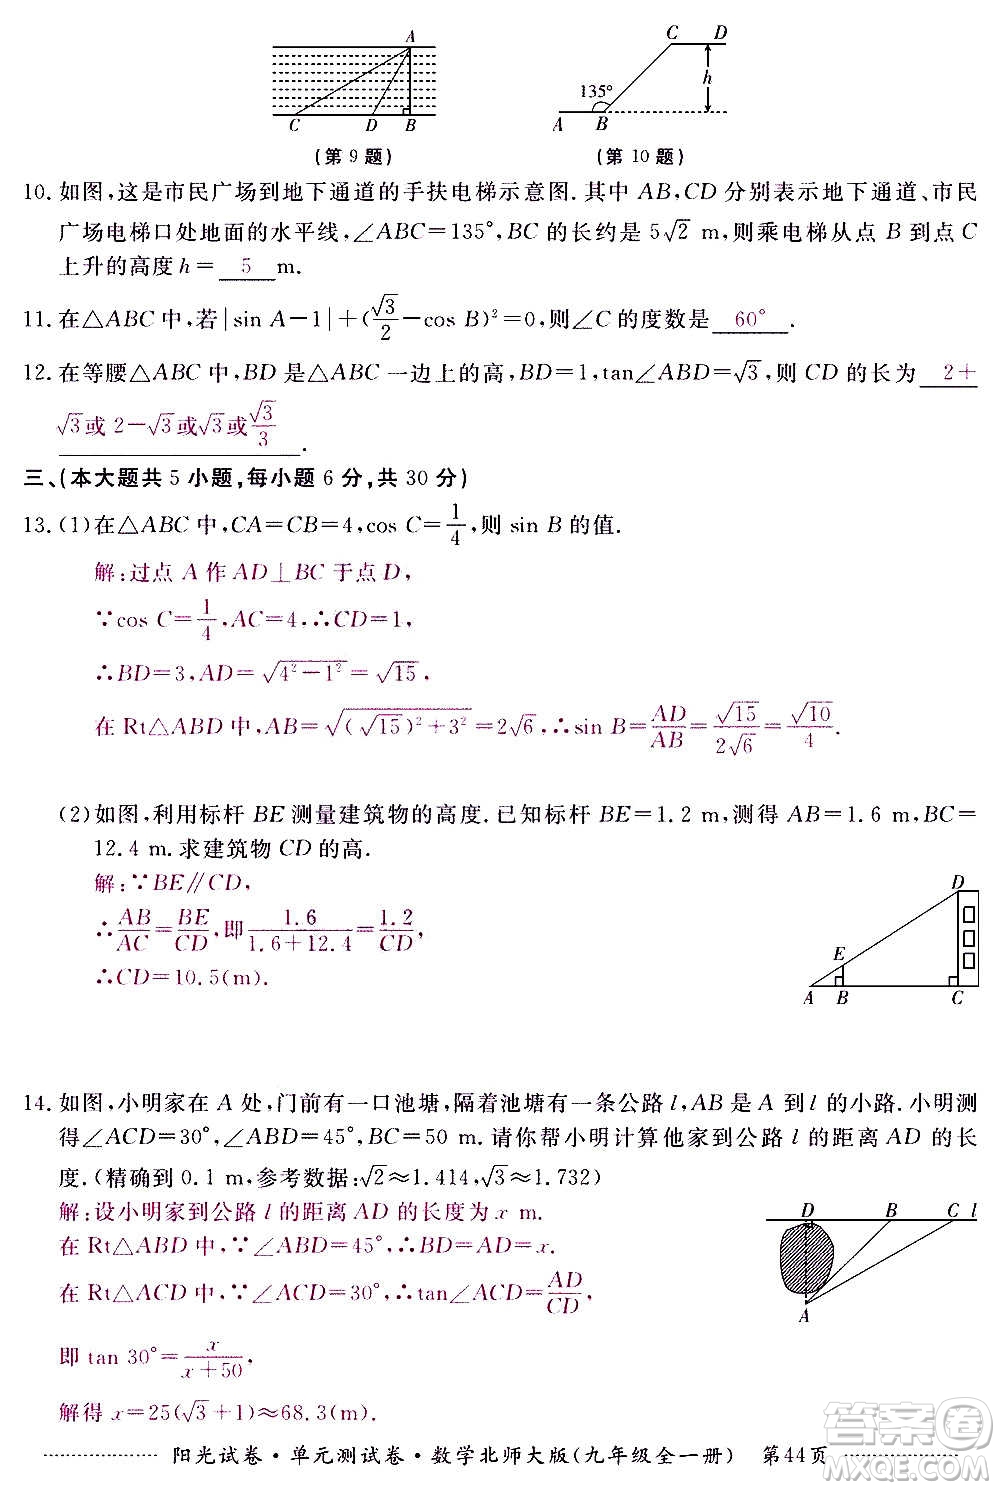 A
C
D
B
(第 9 题)
C
D
135°
h
A
B
(第 10 题)
10. 如图,这是市民广场到地下通道的手扶电梯示意图. 其中 AB,CD 分别表示地下通道、市民
广场电梯口处地面的水平线,∠ABC=135°,BC 的长约是 5√2 m,则乘电梯从点 B 到点 C
上升的高度 h= 5 m.
11. 在△ABC 中,若|sin A−1|+(√3/2−cos B)²=0,则∠C 的度数是 60° .
12. 在等腰△ABC 中,BD 是△ABC 一边上的高,BD=1,tan∠ABD=√3,则 CD 的长为 2+
√3或 2−√3或√3或√3/3 .
三、(本大题共 5 小题,每小题 6 分,共 30 分)
13. (1)在△ABC 中,CA=CB=4,cos C=1/4,则 sin B 的值.
解:过点 A 作 AD⊥BC 于点 D,
∵cos C=1/4,AC=4,∴CD=1,
∴BD=3,AD=√(4²−1²)=√15.
在 Rt△ABD 中,AB=√((√15)²+3²)=2√6,∴sin B=AD/AB=√15/2√6=√10/4.
(2)如图,利用标杆 BE 测量建筑物的高度. 已知标杆 BE=1.2 m,测得 AB=1.6 m,BC=
12.4 m.求建筑物 CD 的高.
解:∵BE∥CD,
∴AB/AC=BE/CD,即1.6/(1.6+12.4)=1.2/CD,
∴CD=10.5(m).
D
E
A
B
C
14. 如图,小明家在 A 处,门前有一口池塘,隔着池塘有一条公路 l,AB 是 A 到 l 的小路. 小明测
得∠ACD=30°,∠ABD=45°,BC=50 m. 请你帮小明计算他家到公路 l 的距离 AD 的长
度.(精确到 0.1 m,参考数据:√2≈1.414,√3≈1.732)
解:设小明家到公路 l 的距离 AD 的长度为 x m.
在 Rt△ABD 中,∵∠ABD=45°,∴BD=AD=x.
在 Rt△ACD 中,∵∠ACD=30°,∴tan∠ACD=AD/CD,
即 tan 30°=x/(x+50),
解得 x=25(√3+1)≈68.3(m).
D
B
C
l
A
阳光试卷·单元测试卷·数学北师大版(九年级全一册) 第44页